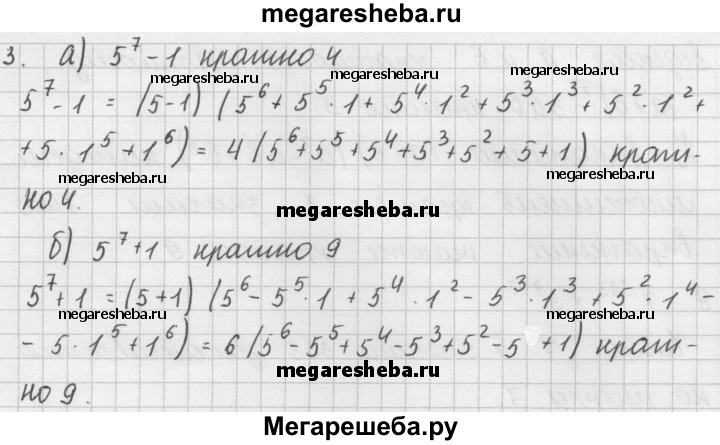 megaresheba.ru
3. а) 5^7 - 1 кратно 4
megaresheba.ru megaresheba.ru
5^7 - 1 = (5-1) (5^6 + 5^5 · 1 + 5^4 · 1^2 + 5^3 · 1^3 + 5^2 · 1^2 +
+ 5 · 1^5 + 1^6) = 4 (5^6 + 5^5 + 5^4 + 5^3 + 5^2 + 5 + 1) крат-
megaresheba.ru megaresheba.ru
но 4.
megaresheba.ru
б) 5^7 + 1 кратно 9
megaresheba.ru megaresheba.ru
5^7 + 1 = (5+1) (5^6 - 5^5 · 1 + 5^4 · 1^2 - 5^3 · 1^3 + 5^2 · 1^4 -
- 5 · 1^5 + 1^6) = 6 (5^6 - 5^5 + 5^4 - 5^3 + 5^2 - 5 + 1) крат-
megaresheba.ru
но 9.
Мегарешеба.ру